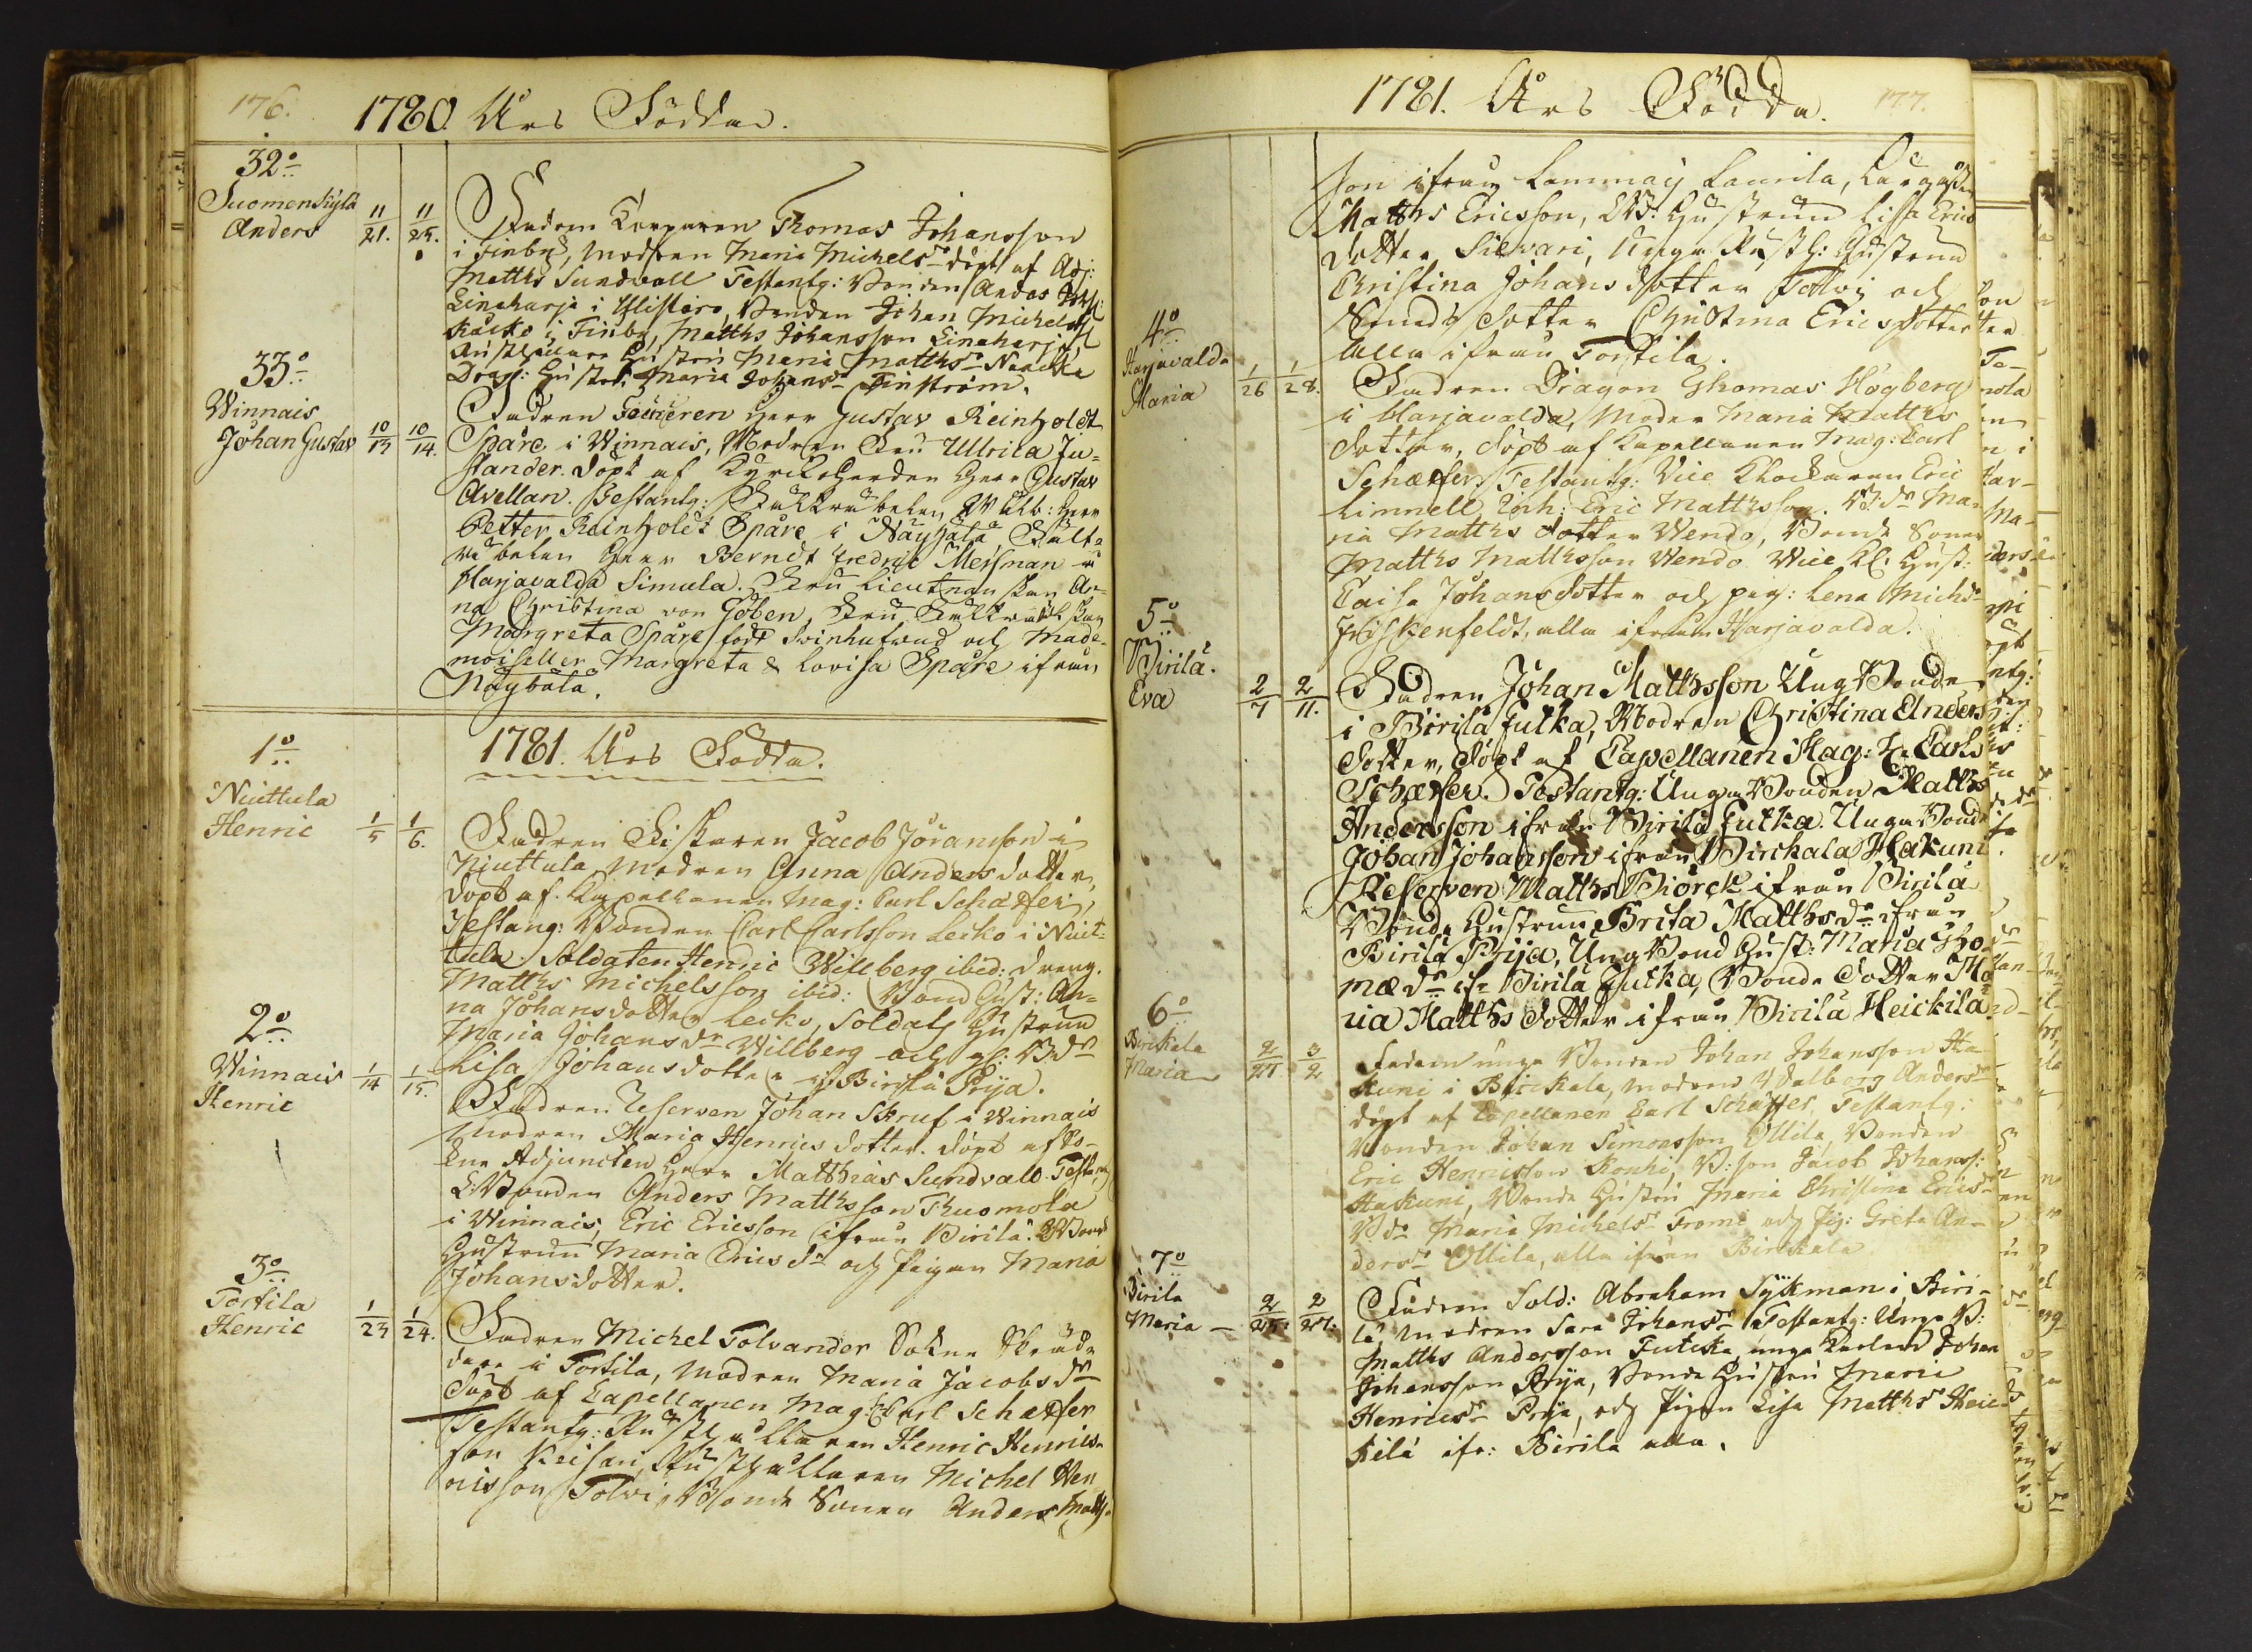 176.
1780. Års Födde.
32o
Suomenkylä
Anders
11/21.
11/25.
Fadren Corporen Thomas Johansson
i Finby, Modren Maria Michelsdr döpt af Adj:
Matths Sundwall Testantg: Bonden Andes Joh:
Linaharja i Ylistaro, Bonden Johan Michelss
Kácko i Finby, Matths Johansson Linaharja
Rusthållare Hustru Maria Matthsdr
Drag: Hustr. Maria Johansdr Finström.
33o
Winnais
Johan Gustav
10/13
10/14.
Fadren Fourieren Herr Gustav Reinholdt
Spåre i Winnais, Modren Fru Ullrica Ju=
slander. Döpt af Kyrkoherden Herr Gustav
Avellan. Testantg: Wälb: Herr
Petter Reinholdt Spåre i Näyhälä, Fält=
väbelen Herr Berndt Fredric Meisman i
Harjavalda Simula. Fru Lieutnanskan An=
na Christina von Göben, Fru
Margreta Spåre född Svinhufvud och Made=
moiseller Margreta & Lovisa Spåre ifrån
Näyhälä.
1781. Års Födde.
1o
Niuttula
Henric
1/5
1/6.
Fadren Fiskaren Jacob Jöransson i
Niuttula Modren Anna Andersdotter,
döpt af Capellanen Mag: Carl Schæffer,
Testang: Bonden Carl Carlsson Lecko i Niut=
tula. Soldaten Henric Willberg ibid: dreng.
Matths Michelsson ibid: Bond Hust: An=
na Johansdotter Lecko, Soldats Hustrun
Maria Johansdr Willberg och
Lisa Johansdotter if Birilä Prija.
2o
Winnais
Henric
1/14
1/15.
Fadren Reserven Johan Skruf i Winnais
Modren Maria Henricsdotter. döpt af So=
kne Adjuncten Herr Matthias Sundvall. Testan
Bonden Anders Matthsson Thuomola
i Winnais, Eric Ericsson ifrån Birilä. Bond
Hustrun Maria Ericsdr och Pigan Maria
Johansdotter.
3o
Torttila
Henric
1/23
1/24.
Fadren Michel Tolvander Sokne Skräd=
dare i Torttila, Modren Maria Jacobsdr
Döpt af Capellanen Mag: Carl Schæffer
Testantg: Rusthållaren Henric Henrics=
son Keisari, Rusthållaren Michel Hen
ricsson Tolvi, Bonde Sonen Anders Matths=
1781. Års Födda.
177.
son ifrån Lammaij Laurila,
Matths Ericsson, Hustrun Lisa Erics
dotter Silvari, Unga Rusth: Hustrun
Christina Johansdotter Tollvi och
Bonde Dotter Christina Ericsdotter
alla ifrån Torttila.
4o
Harjavalda
Maria
1/26
1/28.
Fadren Dragon Thomas Högberg
i Harjavalda, Moder Maria Matths
dotter, döpt af Capellanen Mag: Carl
Schæffer. Testantg: Vice Klockaren Eric
Limnell Inh: Eric Matthsson. B:dr Ma=
ria Matths dotter Wendo, Bonde Sonen
Matths Matthsson Wendo. Wice Kl: Hust:
Caisa Johansdotter och pig: Lena Michsdr
Friskenfeldt, alla ifrån Harjavalda.
5o
Birilä.
Eva
2/7
2/11.
Fadren Johan Matthsson Ung Bonde
i Birilä Jutka, Modren Christina Anders
dotter, döpt af Capellanen Mag: Hr Carl
Schæffer. Testantg: Unga Bonden Matths
Andersson ifrån Birilä Jutka. Unga Bond
Johan Johansson ifrån Birckala Hakuni
Reserven Matths Biörck ifrån Birilä
Bonde Hustrun Brita Matthsdr ifrån
Birilä Prija, Ung Bond Hust: Maria Tho=
mædr if. Birilä Jutka, Bonde Dotter Ma
ria Matths dotter ifrån Birilä Heickilä
6o
Birckala
Maria
2/27
3/2
Fadern unga Bonden Johan Johansson Ha=
kuni i Birckala, modern Walborg Andersdr
döpt af Capellanen Carl Schæffer, Testantg:
Bonden Johan Simonsson Ollila, Bonden
Eric Henricsson Konhi, B:son Jacob Johanss:
Hakuni, Bonde Hustru Maria Christina Ericsdr
B:dr Maria Michelsdr Fromi och Pig: Greta An=
dersdr Ollila, alla ifrån Birckala
7o
Birila
Maria
2/25.
2/27.
Fadren Sold: Abraham Sykman i Biri=
lä, modren Sara Johansdr Testantg: Unga B:
Matths Andersson Juticka, unga Karlen Johan
Johansson Prija, Bonde Hustru Maria
Henricsdr Prija, och Pigan Lisa Matthsdr Heic
kilä ifr: Birila alla.